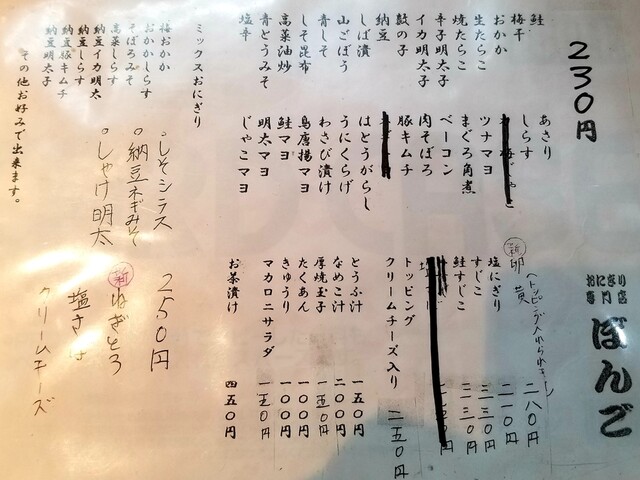 おにぎり
専門店
ぼんご
230円
鮭
梅干
おかか
生たらこ
焼たらこ
辛子明太子
イカ明太子
納豆
しば漬
山ごぼう
青しそ
しそ昆布
高菜油炒
青とうみそ
塩辛
あさり
しらす
ツナマヨ
まぐろ角煮
ベーコン
肉そぼろ
豚キムチ
はとうがらし
うにくらげ
わさび漬け
鳥唐揚マヨ
鮭マヨ
明太マヨ
じゃこマヨ
新 卵黄 二八0円
塩にぎり 二一0円
すじこ 三三0円
鮭すじこ
トッピング
クリームチーズ入り 二五0円
とうふ汁 一五0円
なめこ汁 二00円
厚焼玉子 一五0円
たくあん 一00円
きゅうり 一00円
マカロニサラダ 一五0円
お茶漬け 四五0円
ミックスおにぎり
梅おかか
おかかしらす
そぼろみそ
高菜しらす
納豆イカ明太
納豆しらす
納豆豚キムチ
納豆明太子
その他お好みで出来ます。
しそシラス
納豆ネギみそ
しゃけ明太
250円
新 ねぎとろ
塩さば
クリームチーズ